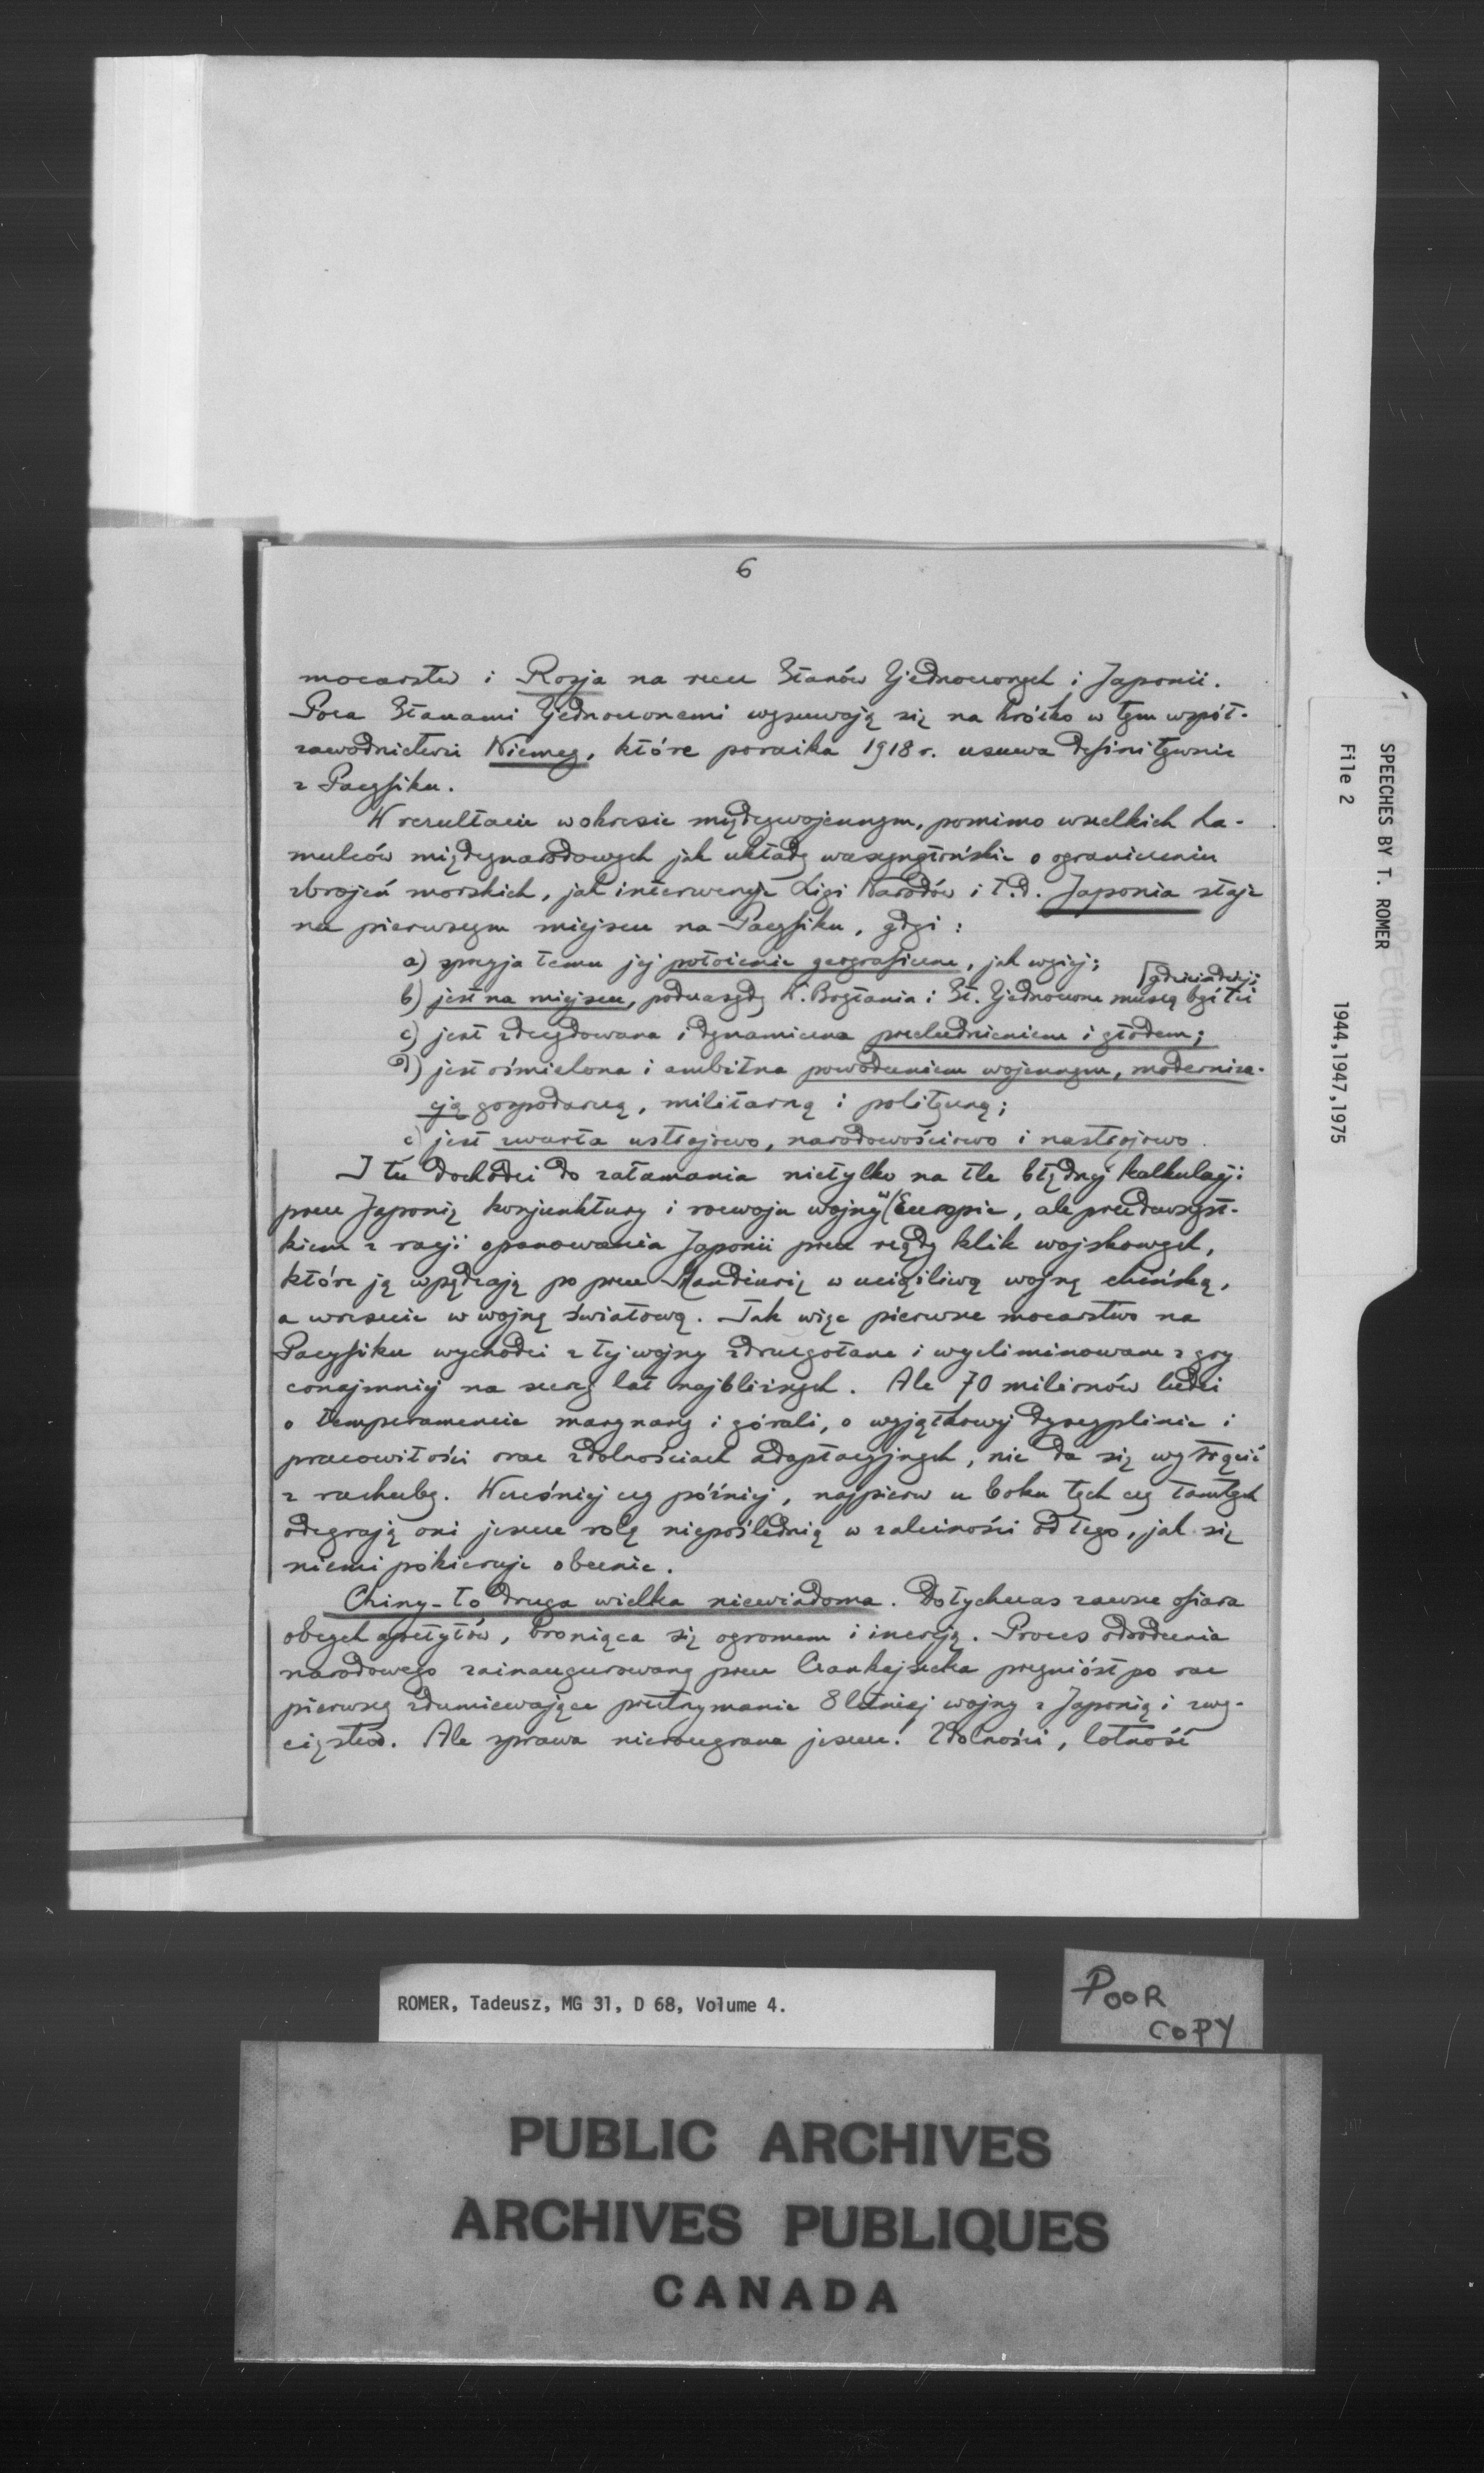 6
mocarstw i Rosja na rzecz Stanów Zjednoczonych i Japonii.
Poza Stanami Zjednoczonemi wysuwają się na krótko w tym współ-
zawodnictwie Niemcy, które porażka 1918 r. usuwa definitywnie
z Pacyfiku.
W rezultacie w okresie międzywojennym, pomimo wszelkich ha-
mulców międzynarodowych jak układy waszyngtońskie o ograniczeniu
zbrojeń morskich, jak interwencje Ligi Narodów i t.d. Japonia staje
na pierwszym miejscu na Pacyfiku, gdyż:
a) sprzyja temu jej położenie geograficzne, jak wyżej;
[gdzieindziej;
b) jest na miejscu, podczas gdy W. Brytania i St. Zjednoczone muszą być też
c) jest zdecydowana i dynamiczna przeludnieniem i głodem;
d) jest ośmielona i ambitna powodzeniem wojennym, moderniza-
cją gospodarczą, militarną i polityczną;
e) jest zwarta ustrojowo, narodowościowo i nastrojowo.
I tu dochodzi do załamania nietylko na tle błędnej kalkulacji
przez Japonię konjunktury i rozwoju wojny w Europie, ale przedewszyst-
kiem z racji opanowania Japonii przez rządy klik wojskowych,
które ją wpędzają poprzez Mandżurię w uciążliwą wojnę chińską,
a wreszcie w wojnę światową. Tak więc pierwsze mocarstwo na
Pacyfiku wychodzi z tej wojny zdruzgotane i wyeliminowane z gry
conajmniej na szereg lat najbliższych. Ale 70 milionów ludzi
o temperamencie marynarzy i górali, o wyjątkowej dyscyplinie i
pracowitości oraz zdolnościach adaptacyjnych, nie da się wytrącić
z rachuby. Wcześniej czy później, najpierw u boku tych czy tamtych
odegrają oni jeszcze rolę niepoślednią w zależności od tego, jak się
niemi pokieruje obecnie.
Chiny - to druga wielka niewiadoma. Dotychczas zawsze ofiara
obcych apetytów, broniąca się ogromem i inercją. Proces odrodzenia
narodowego zainaugurowany przez Czankajszeka przyniósł po raz
pierwszy zdumiewające przetrzymanie 8 letniej wojny z Japonią i zwy-
cięstwo. Ale sprawa nierozegrana jeszcze! Zdolności, lotność
SPEECHES BY T. ROMER
File 2
1944,1947,1975
ROMER, Tadeusz, MG 31, D 68, Volume 4.
POOR
COPY
PUBLIC ARCHIVES
ARCHIVES PUBLIQUES
CANADA